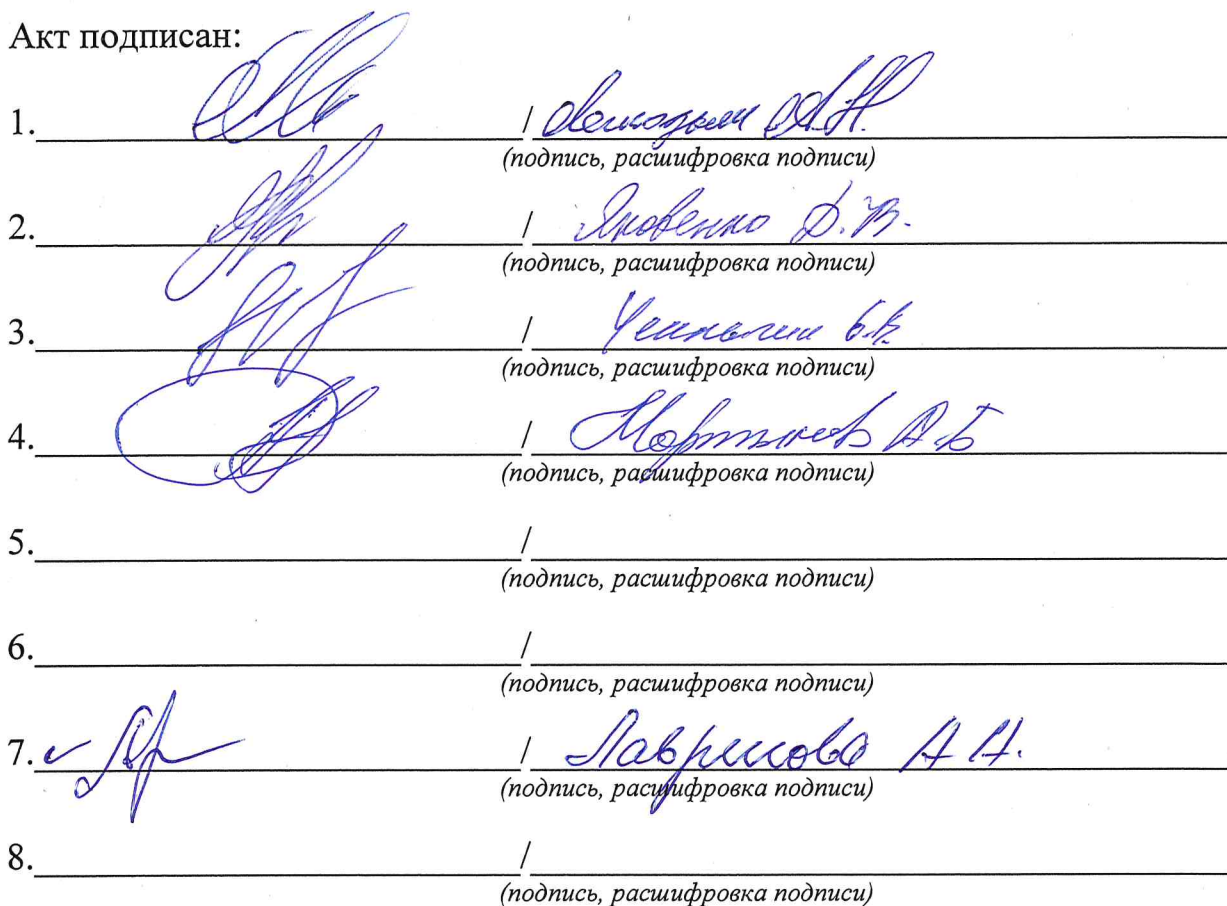 Акт подписан:
1. /
(подпись, расшифровка подписи)
2. / Яковенко Д.В.
(подпись, расшифровка подписи)
3. /
(подпись, расшифровка подписи)
4. / Мартынов А.Б
(подпись, расшифровка подписи)
5. /
(подпись, расшифровка подписи)
6. /
(подпись, расшифровка подписи)
7. / Лаврикова А.А.
(подпись, расшифровка подписи)
8. /
(подпись, расшифровка подписи)